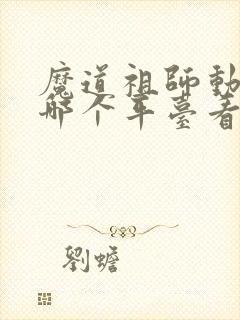 魔道祖師動
哪个平臺看
劉蟾